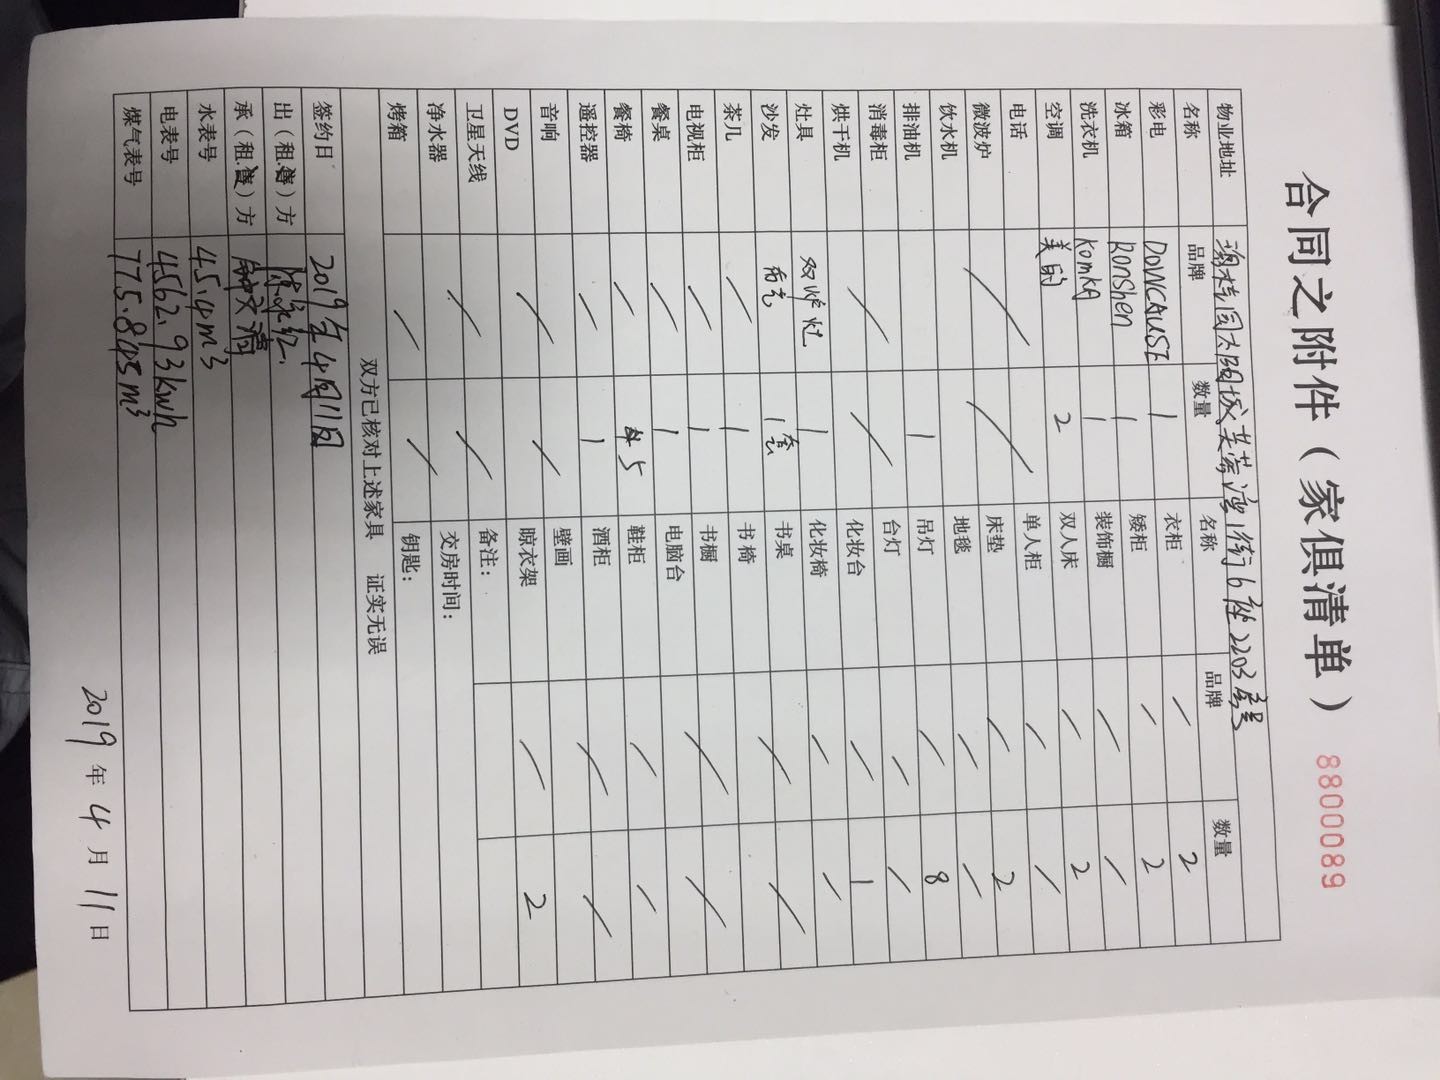 合同之附件（家俱清单） 8800089
物业地址 太阳城芙蓉湾1街6座2203
名称 品牌 数量 名称 品牌 数量
彩电 DONCAUSE 1 衣柜 / 2
冰箱 RonShen 1 矮柜 / 2
洗衣机 KomKA 1 装饰橱 / /
空调 美的 2 双人床 / 2
电话 单人柜 / /
微波炉 / / 床垫 / 2
饮水机 地毯 / /
排油机 1 吊灯 / 8
消毒柜 台灯 / /
烘干机 / / 化妆台 / 1
灶具 双炉灶 1 化妆椅 / /
沙发 布艺 1套 书桌 / /
茶几 / 1 书椅
电视柜 / 1 书橱 / /
餐桌 / 1 电脑台
餐椅 / 5 鞋柜 / /
遥控器 / 1 酒柜 / /
音响 / / 壁画
DVD 晾衣架 / 2
卫星天线 / / 备注：
净水器 交房时间：
烤箱 / / 钥匙：
双方已核对上述家具 证实无误
签约日 2019年4月11日
出（租.售）方
承（租.售）方
水表号 45.4m³
电表号 4562.93kwh
煤气表号 775.845m³
2019年4月11日